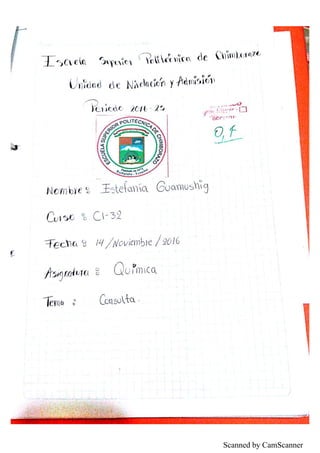 Escuela Superior Politécnica de Chimborazo
Unidad de Nivelación y Admisión
Periodo 2016-2S
ESCUELA SUPERIOR POLITECNICA DE CHIMBORAZO
Nombre: Estefanía Guamushig
Curso: CI-32
Fecha: 14/Noviembre/2016
Asignatura: Química
Tema: Consulta.
Scanned by CamScanner